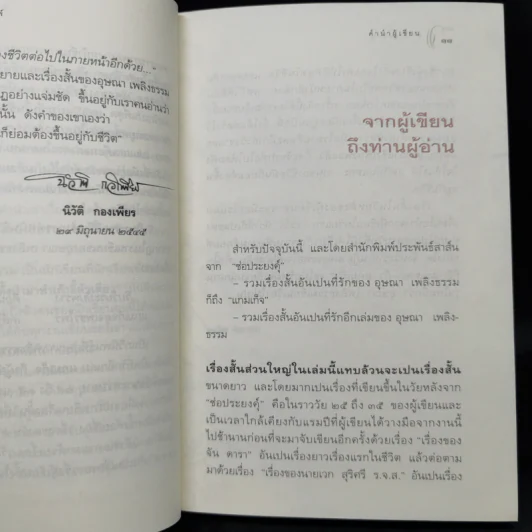 องชีวิตต่อไปในภายหน้าอีกด้วย..."
ยายและเรื่องสั้นของอุษณา เพลิงธรรม
ฏอย่างแจ่มชัด ขึ้นอยู่กับเราคนอ่านว่า
นั้น ดังคำของเขาเองว่า
ก็ย่อมต้องขึ้นอยู่กับชีวิต"
นิวัติ กองเพียร
นิวัติ กองเพียร
๒๙ มิถุนายน ๒๕๔๕
คำนำผู้เขียน
๑๑
จากผู้เขียน
ถึงท่านผู้อ่าน
สำหรับปัจจุบันนี้ และโดยสำนักพิมพ์ประพันธ์สาส์น
จาก "ช่อประยงค์ุ"
– รวมเรื่องสั้นอันเปนที่รักของ อุษณา เพลิงธรรม
ก็ถึง "แกมเก็จ"
– รวมเรื่องสั้นอันเปนที่รักอีกเล่มของ อุษณา เพลิง-
ธรรม
เรื่องสั้นส่วนใหญ่ในเล่มนี้แทบล้วนจะเปนเรื่องสั้น
ขนาดยาว และโดยมากเปนเรื่องที่เขียนขึ้นในวัยหลังจาก
"ช่อประยงค์ุ" คือในราววัย ๒๕ ถึง ๓๕ ของผู้เขียนและ
เป็นเวลาใกล้เคียงกับแรมปีที่ผู้เขียนได้วางมือจากงานนี้
ไปช้านานก่อนที่จะมาจับเขียนอีกครั้งด้วยเรื่อง "เรื่องของ
จัน ดารา" อันเปนเรื่องยาวเรื่องแรกในชีวิต แล้วต่อตาม
มาด้วยเรื่อง "เรื่องของนายเวก สุริศรี ร.จ.ส." อันเปนเรื่อง